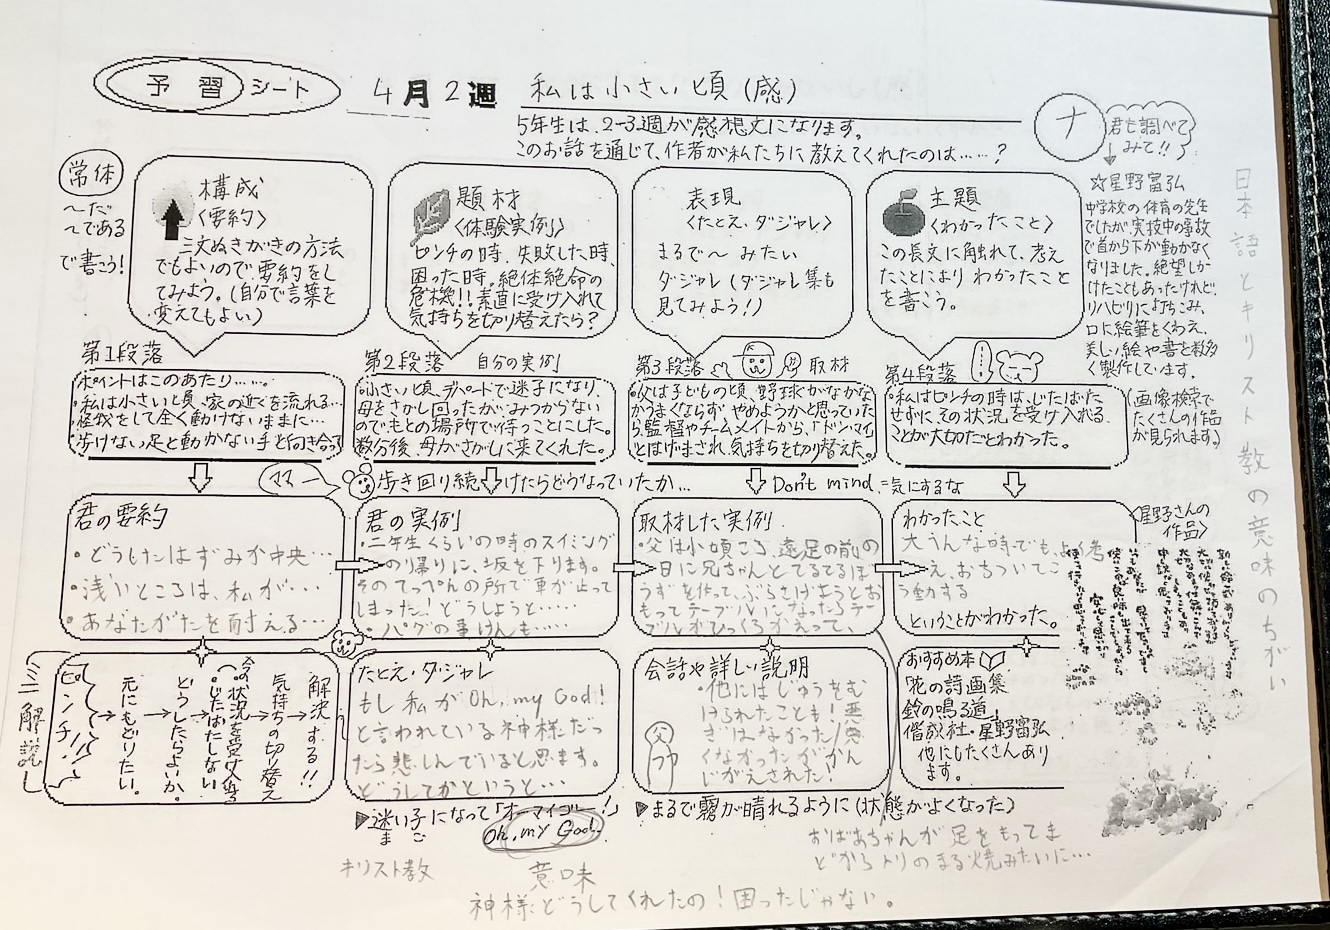 予習シート
4月2週
私は小さい頃(感)
5年生は、2~3週が感想文になります。
このお話を通じて、作者が私たちに教えてくれたのは……?
ナ
君も調べて
みて!!
常体
~だ
~である
で書こう!
構成
〈要約〉
三文ぬきがきの方法
でもよいので要約をし
てみよう。(自分で言葉を
変えてもよい)
題材
〈体験実例〉
ピンチの時、失敗した時、
困った時。絶体絶命の
危機!!素直に受け入れて
気持ちを切り替えたら?
表現
〈たとえ、ダジャレ〉
まるで~みたい
ダジャレ(ダジャレ集も
見てみよう!)
主題
〈わかったこと〉
この長文に触れて、考え
たことによりわかったこと
を書こう。
☆星野富弘
中学校の体育の先生
でしたが実技中の事故
で首から下が動かなく
なりました。絶望しか
けたこともあったけれど、
リハビリに打ちこみ、
口に絵筆をくわえ、
美しい絵や書を数多
く製作しています。
(画像検索で
たくさんの作品
が見られます。)
日本語とキリスト教の意味のちがい
第1段落
ポイントはこのあたり……。
・私は小さい頃、家の近くを流れる…
・怪我をして全く動けないままに…
・歩けない足と動かない手と向き合
第2段落 自分の実例
・小さい頃、デパートで迷子になり、
母をさがし回ったが、みつからない
のでもとの場所で待つことにした。
数分後、母がさがしに来てくれた。
第3段落 取材
・父は子どもの頃、野球がなかな
かうまくならず、やめようかと思っていた
ら、監督やチームメイトから、「ドンマイ」
とはげまされ、気持ちを切り替えた。
第4段落
・私はピンチの時は、じたばた
せずに、その状況を受け入れる
ことが大切だとわかった。
ママー
歩き回り続けたらどうなっていたか…
Don't mind.=気にするな
君の要約
・どうしたはずみか中央…
・浅いところは、私が…
・あなたがたを耐える…
君の実例
・二年生くらいの時のスイミング
のり帰りに、坂を下ります。
そのてっぺんの所で車が止って
しまった!どうしようと……
・ハグの事けんも……
取材した実例
・父は小頃ころ、遠足の前の
日に兄ちゃんとてるてるぼ
うずを作って、ぶらさげようとお
もってテーブルになったらテー
ブルがひっくりかえって、
わかったこと
大うんな時でも、よく考
え、おちついてこ
う動する
ということがわかった。
〈星野さんの
作品〉
ミニ解説
ピンチ!!
→元にもどりたい。
→どうしたらよいか。
→じたばたしない
(今の状況を受け入れる)
→気持ちの切り替え
→解決する!!
たとえ・ダジャレ
もし私がOh, my God!
と言われている神様だっ
たら悲しんでいると思ます。
どうしてかというと…
会話や詳しい説明
・他にはじゅうをむ
けられたことも!悪
ぎはなかった!悪
くなかったがかん
じがえされた!
父
おすすめ本
「花の詩画集
鈴の鳴る道」
偕成社・星野富弘
他にもたくさんあり
ます。
▶迷い子になって「オーマイゴー!」
まご
Oh, my God!
▶まるで霧が晴れるように(状態がよくなった)
おばあちゃんが足をもってま
どからトリのまる焼みたいに…
キリスト教
意味
神様どうしてくれたの!困ったじゃない。